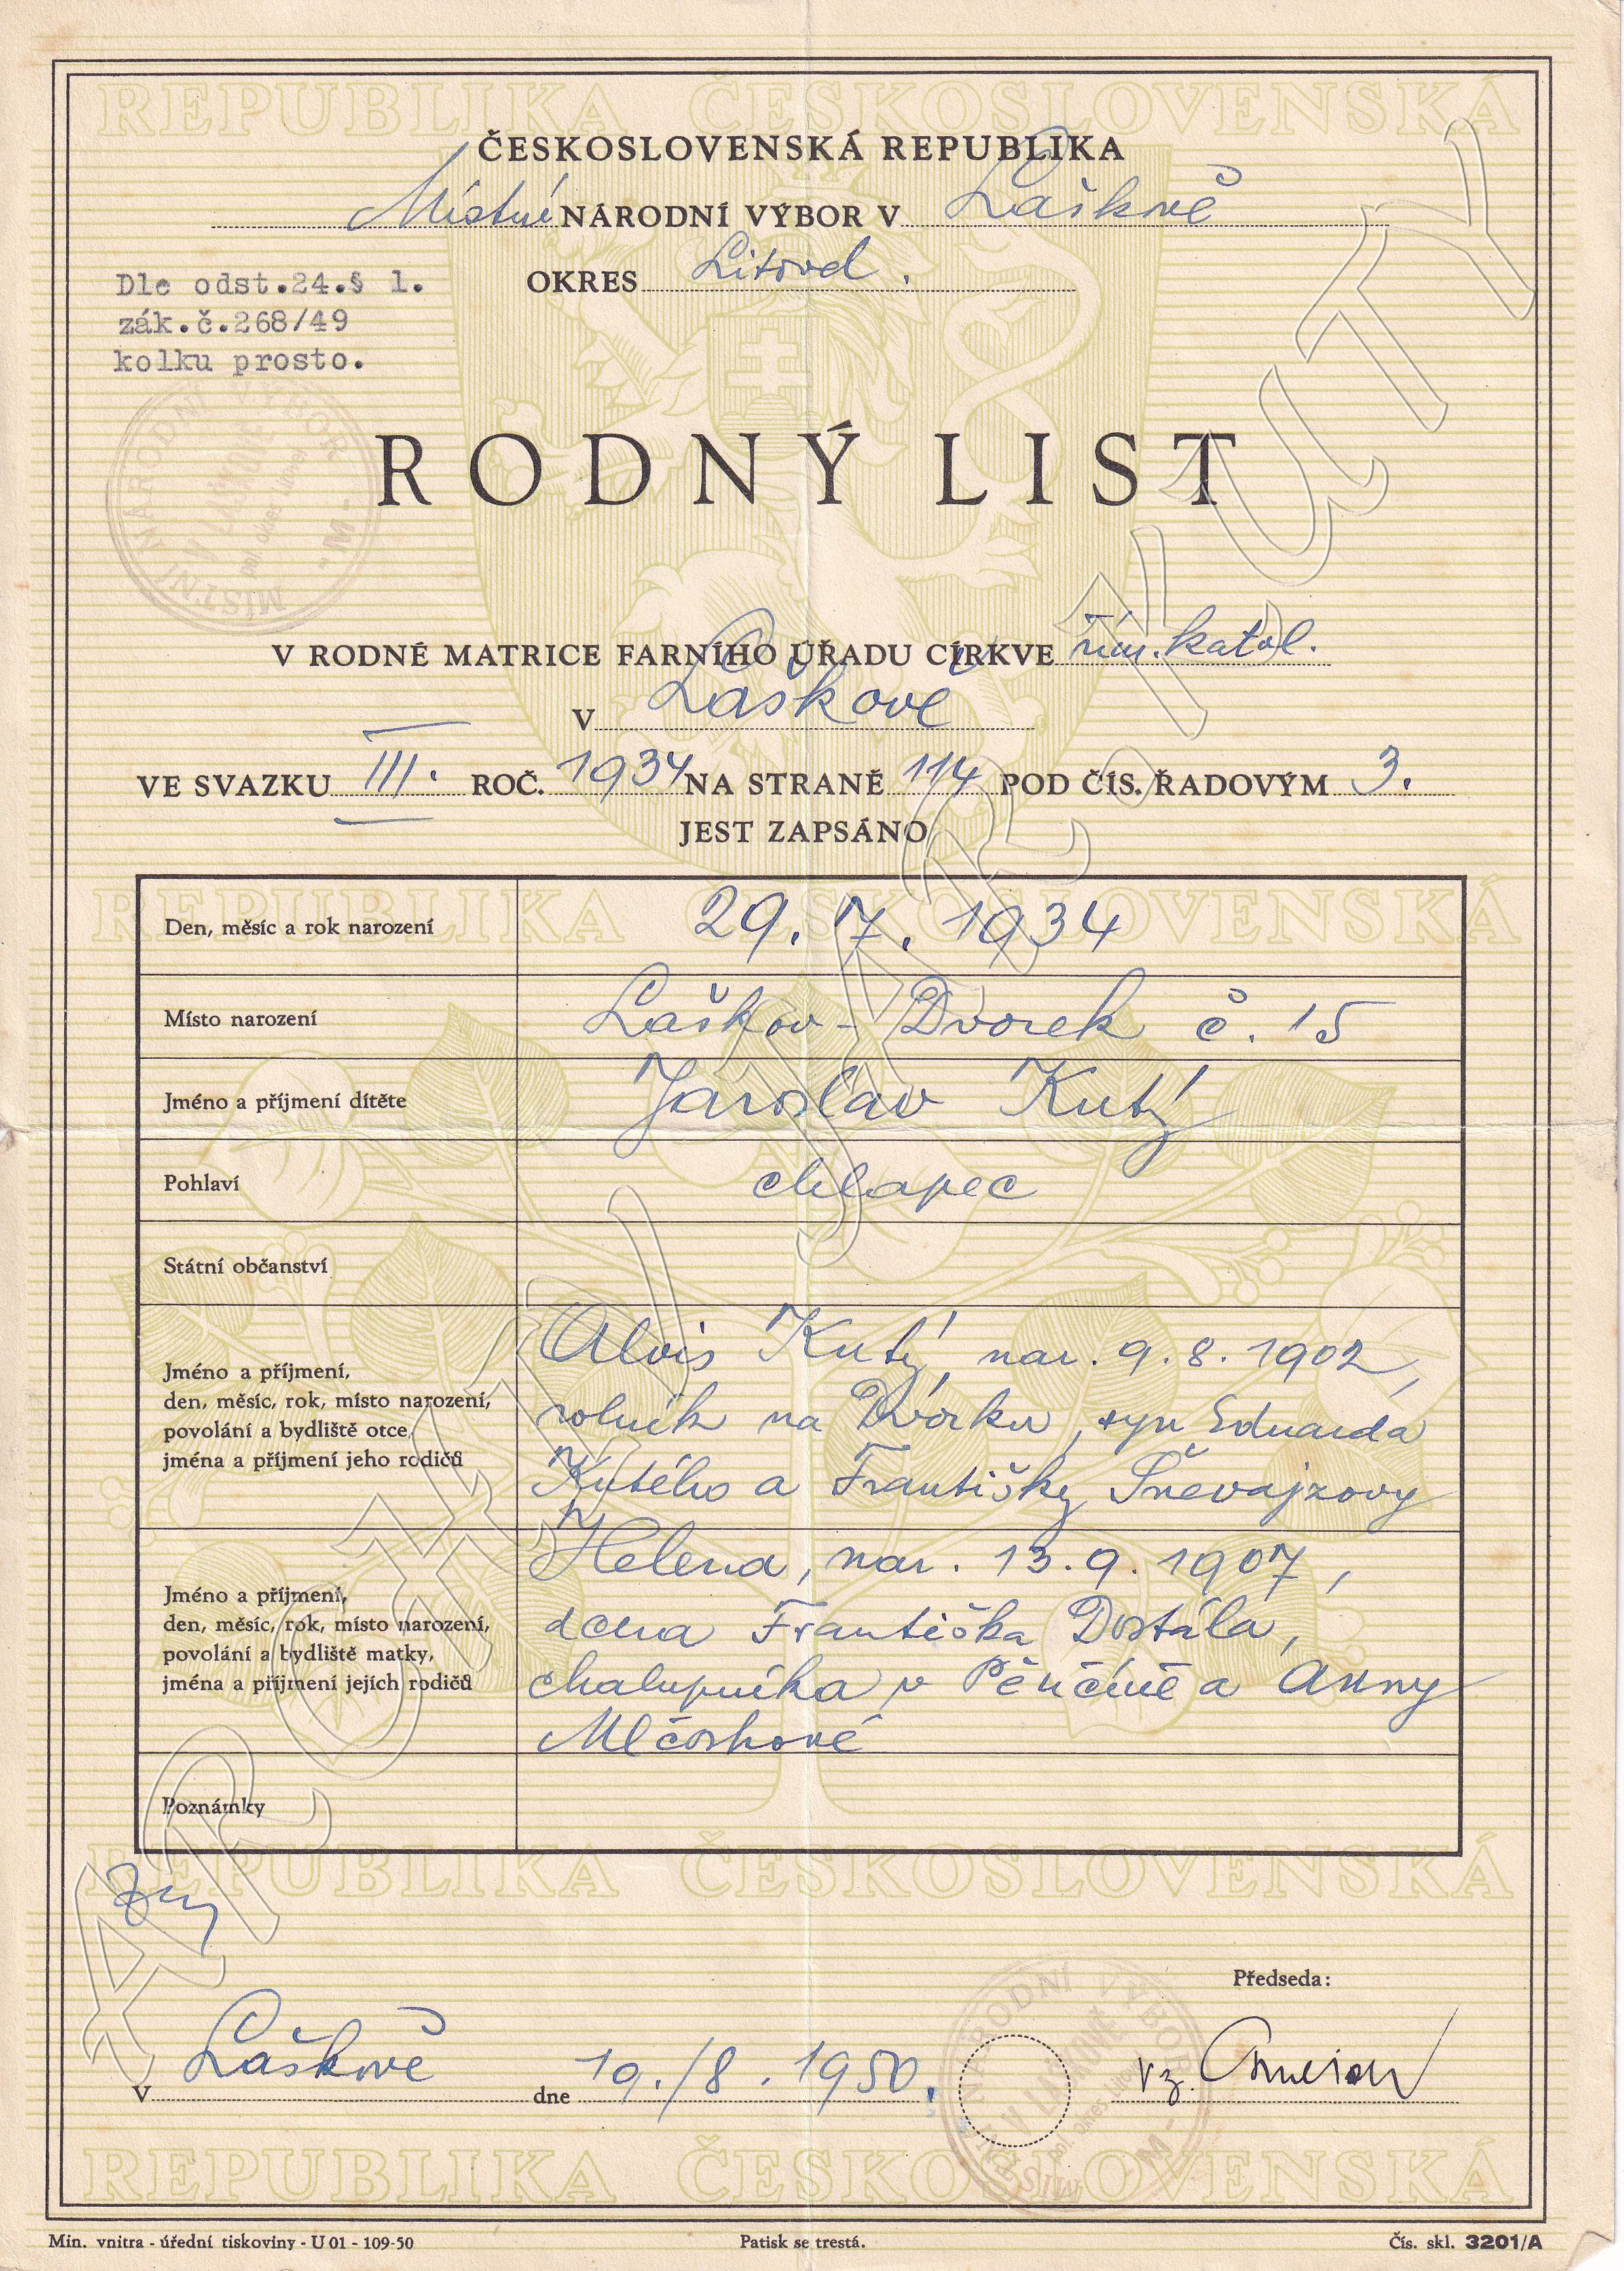 REPUBLIKA ČESKOSLOVENSKÁ
ČESKOSLOVENSKÁ REPUBLIKA
Místní NÁRODNÍ VÝBOR V Laškově
OKRES Litovel.
Dle odst.24.§ 1.
zák.č.268/49
kolku prosto.
MÍSTNÍ NÁRODNÍ VÝBOR
V LAŠKOVĚ
- M -
RODNÝ LIST
V RODNÉ MATRICE FARNÍHO ÚŘADU CÍRKVE řím. katol.
V Laškově
VE SVAZKU III. ROČ. 1934 NA STRANĚ 114 POD ČÍS. ŘADOVÝM 3.
JEST ZAPSÁNO
REPUBLIKA ČESKOSLOVENSKÁ
Den, měsíc a rok narození 29. 7. 1934
Místo narození Laškov - Dvorek č. 15
Jméno a příjmení dítěte Jaroslav Kutý
Pohlaví chlapec
Státní občanství
Jméno a příjmení,
den, měsíc, rok, místo narození,
povolání a bydliště otce,
jména a příjmení jeho rodičů
Alois Kutý nar. 9. 8. 1902,
rolník na Dvorku, syn Eduarda
Kutého a Františky
Jméno a příjmení,
den, měsíc, rok, místo narození,
povolání a bydliště matky,
jména a příjmení jejích rodičů
Helena, nar. 13. 9. 1907,
dcera Františka Dostála,
chalupníka v Pěnčíně a Anny
Mlčochové
Poznámky
REPUBLIKA ČESKOSLOVENSKÁ
Předseda:
V Laškově dne 19./8. 1950.
vz.
MÍSTNÍ NÁRODNÍ VÝBOR
V LAŠKOVĚ
- M -
REPUBLIKA ČESKOSLOVENSKÁ
Min. vnitra - úřední tiskoviny - U 01 - 109-50 Patisk se trestá. Čís. skl. 3201/A
JAR. KUTÝ